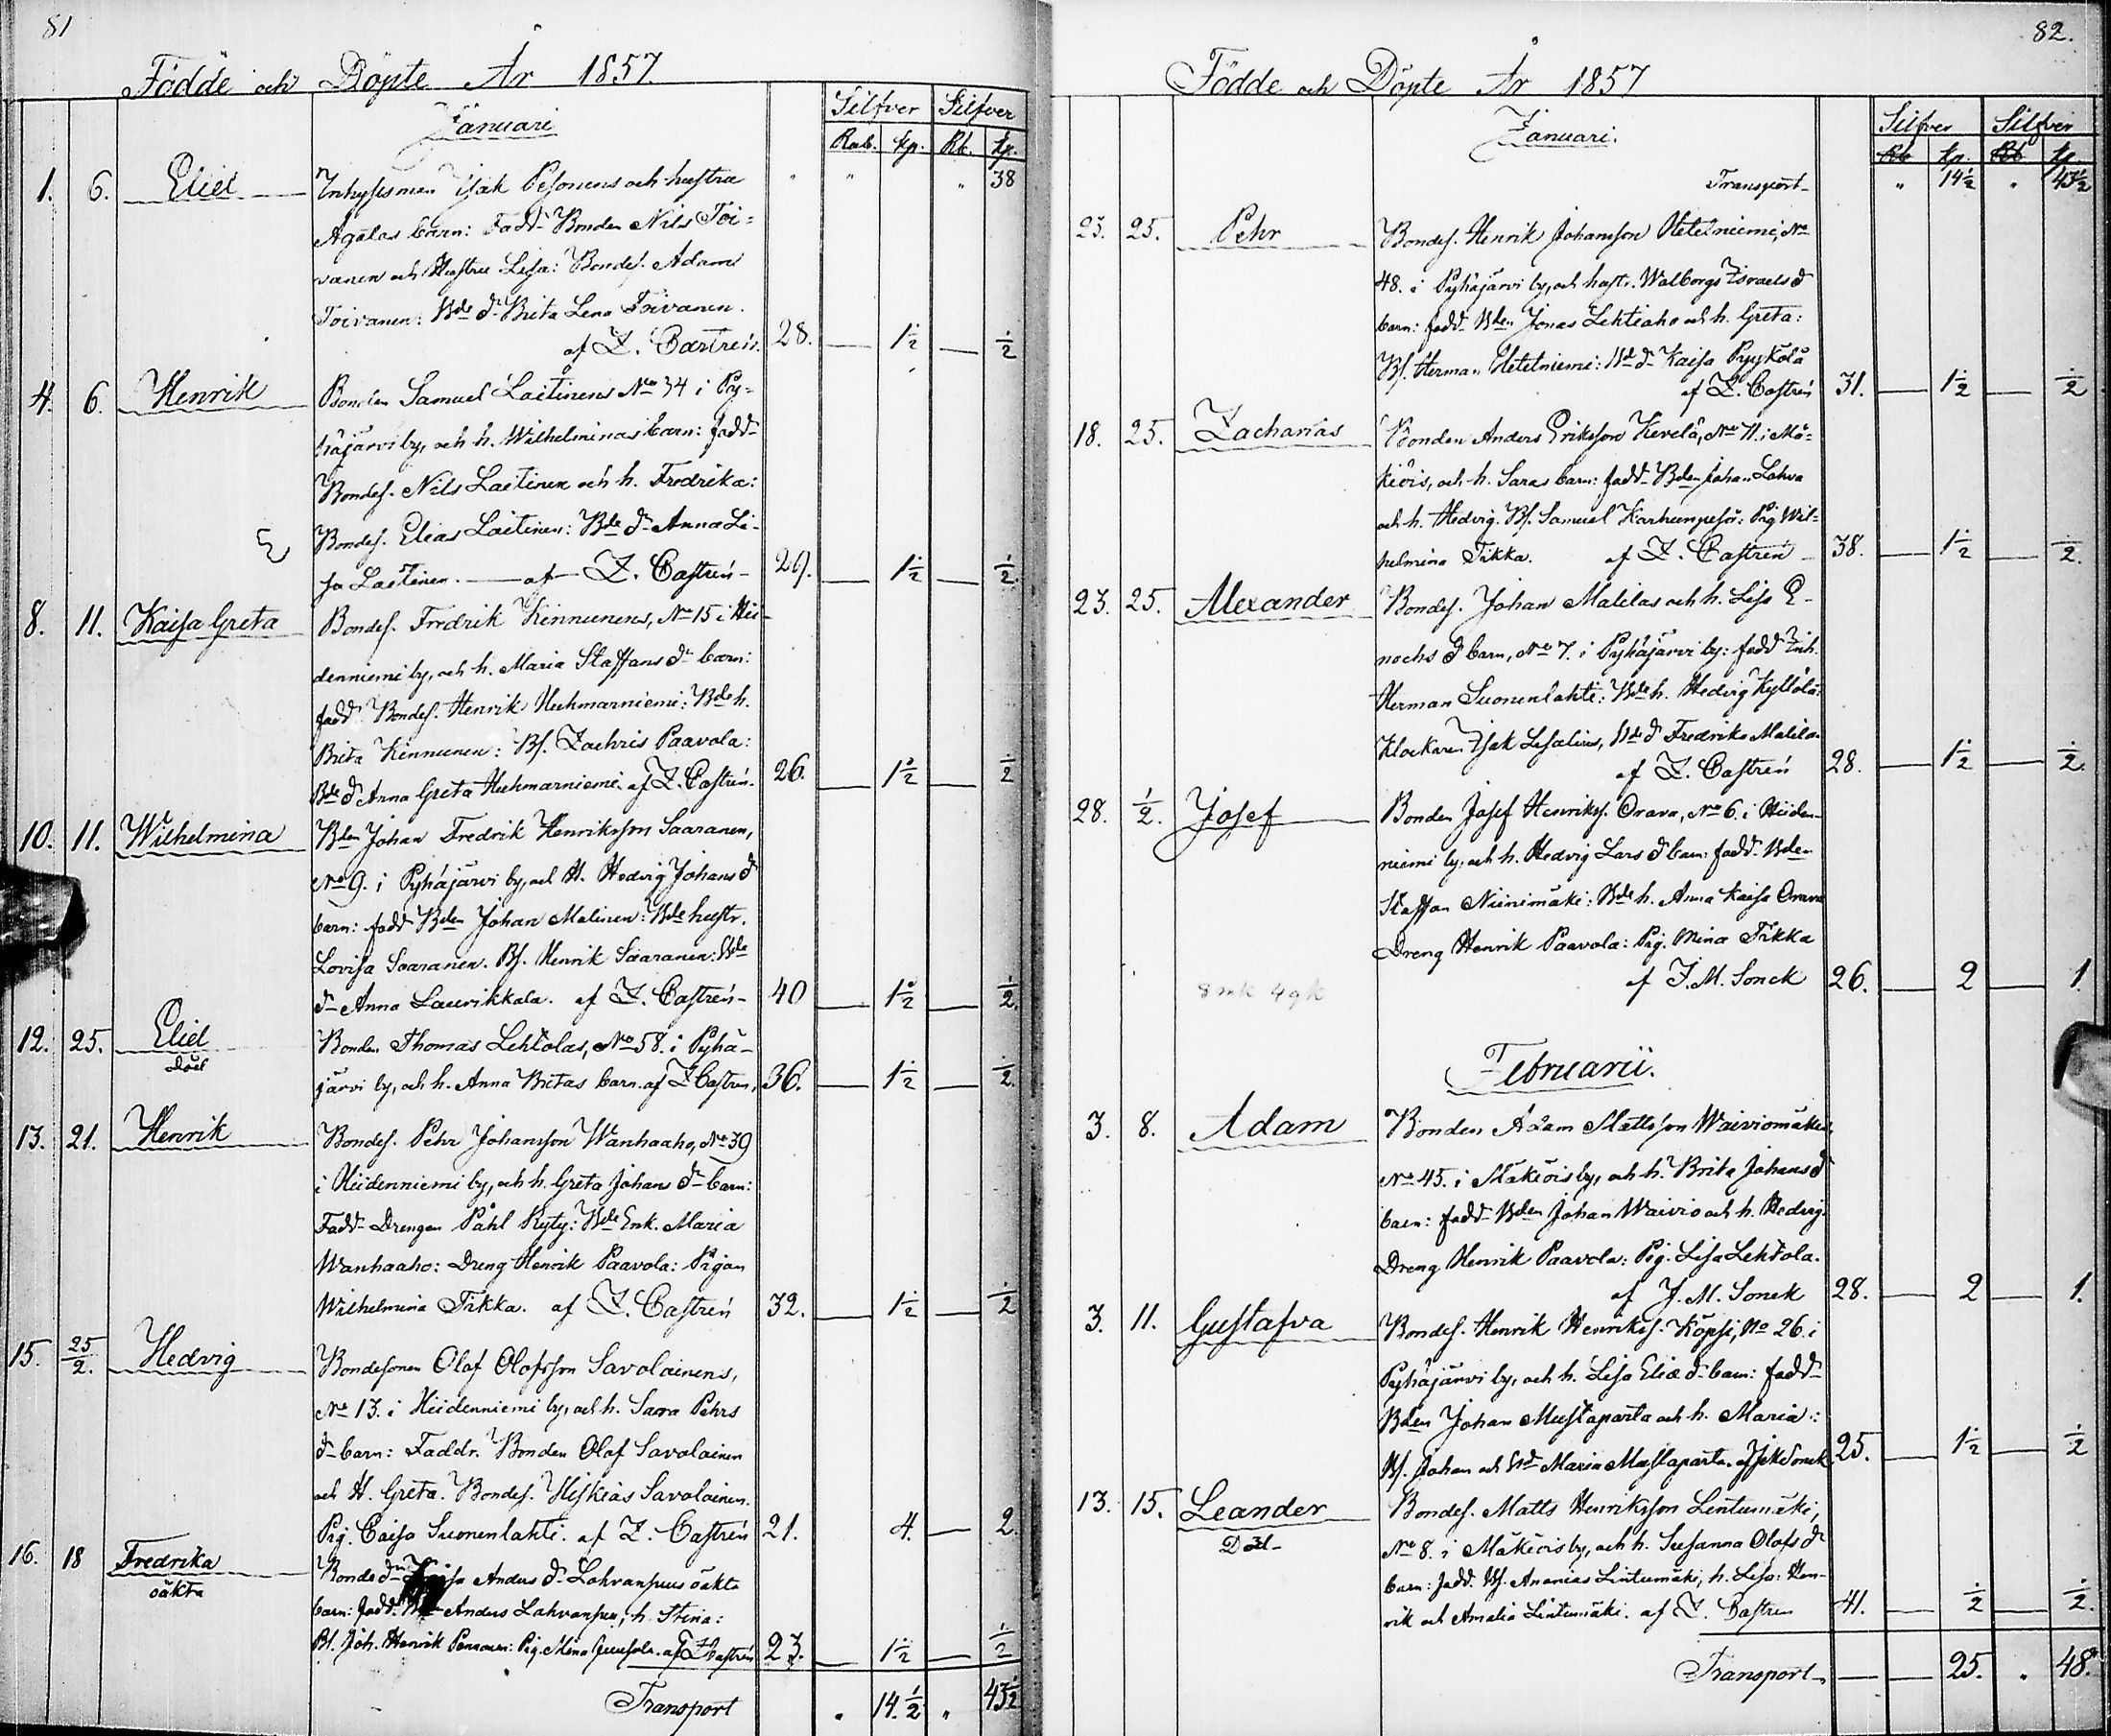 81
Födde och Döpte År 1857
Silfver Silfver
Januari
Rub. kp. Rb. kp.
1. 6. Eliel Inhysesman Isak Pesonens och hustru " " " 38
Agatas barn: Fadd. Bonden Nils Toi=
vanen och Hustru Lisa: Bondes. Adam
Toivanen: Bde dr Brita Lena Toivanen.
af Z. Castrén. 28. — 1½ — ½
4. 6. Henrik Bonden Samuel Laitinens No 34 i Py-
häjärvi by, och h. Wilhelminas barn: fadd.
Bondes. Nils Laitinen och h. Fredrika:
Bondes. Elias Laitinen: Bde dr Anna Li-
sa Laitinen. — af Z. Castrén 29. — 1½ — ½.
8. 11. Kaisa Greta Bondes. Fredrik Kinnunens, No 15 i Hii-
denniemi by, och h. Maria Staffans dr barn:
fadd. Bondes. Henrik Huhmarniemi: Bde h.
Brita Kinnunen: Bs. Zachris Paavola:
Bde d Anna Greta Huhmarniemi. af Z. Castrén. 26. — 1½ — ½
10. 11. Wilhelmina Bden Johan Fredrik Henriksson Saaranen,
No 9. i Pyhäjärvi by, och H. Hedvig Johans d
barn: fadd Bden Johan Malinen: Bde hustr.
Lovisa Saaranen. Bs. Henrik Saaranen: Bde
dr Anna Laurikkala. af Z. Castrén 40 — 1½ — ½.
12. 25. Eliel Bonden Thomas Lehtolas, No 58. i Pyhä-
död järvi by, och h. Anna Britas barn. af Z Castrén, 36. — 1½ — ½.
13. 21. Henrik Bondes. Pehr Johansson Wanhaaho, No 39
i Hiidenniemi by, och h. Greta Johans dr barn:
Fadd. Drengen Påhl Ryty: Bde Enk. Maria
Wanhaaho: Dreng Henrik Paavola: Pigan
Wilhelmina Tikka. af Z. Castrén 32. — 1½ — ½
15. 25/2. Hedvig Bondesonen Olof Olofsson Savolainens,
No 13. i Hiidenniemi by, och h. Sara Pehrs
dr barn: Faddr. Bonden Olof Savolainen
och H. Greta. Bondes. Hiskias Savolainen.
Pig. Caisa Suonenlahti. af Z. Castrén 21. 4. — 2.
16. 18 Fredrika Bonde dr Kaisa Anders dr Lahvanpuus oäkta
oäkta barn: fadd. Anders Lahvanpuu, h. Stina:
Bs. Joh. Henrik Pennanen: Pig. Mina af Z Castrén 23. — 1½ — ½
Transport " 14.½ " 43½
82.
Födde och Döpte År 1857
Silfver Silfver
Januari.
Rb kp. Rb kp.
Transport " 14½ " 43½
23. 25. Pehr Bondes. Henrik Johansson Hetetniemi, No
48. i Pyhäjärvi by, och hustr. Walborgs Israels d
barn: fadd. Bden Jonas Lehtiaho och h. Greta:
Bs. Herman Hetetniemi: Bd dr Kaisa Pyykölä
af Z. Castrén 31. — 1½ — ½
18. 25. Zacharias Bonden Anders Eriksson Kevelä, No 11. i Mä=
kiöis, och h. Saras barn: fadd. Bden Johan Lahva
och h. Hedvig. Bs. Samuel Karhunpesä: Pig Wil-
helmina Tikka. af Z. Castrén 38. — 1½ — ½.
23. 25. Alexander Bondes. Johan Malilas och h. Lisa E-
nochs d barn, No 7. i Pyhäjärvi by: fadd Inh.
Herman Suonenlahti: Bde h. Hedvig Kyllölä:
Klockaren Isak Leselius, Bde d Fredrika Malila
af Z. Castrén 28. — 1½ — ½.
28. ½. Josef Bonden Josef Henrikss. Orava, No 6. i Hiiden-
niemi by, och h. Hedvig Lars d barn: fadd. Bden
Staffan Niinimäki: Bde h. Anna Kaisa Orava
Dreng Henrik Paavola: Pig. Mina Tikka
8 mk 49k af J. M. Sonck 26. — 2 — 1.
Februarii.
3. 8. Adam Bonden Adam Mattsson Waiviomäkis,
No 45. i Mäkiöis by, och h. Brita Johans d
barn: fadd. Bden Johan Waivio och h. Hedvig.
Dreng Henrik Paavola: Pig. Lisa Lehtola.
af J. M. Sonck 28. — 2 — 1.
3. 11. Gustafva Bondes. Henrik Henrikss. Köpsi, No 26. i
Pyhäjärvi by, och h. Lisa Eliæ dr barn: fadd.
Bden Johan Mustaparta och h. Maria:
Bs. Johan och Bd Maria Mustaparta. af Sonck 25. — 1½ — ½
13. 15. Leander Bondes. Matts Henriksson Lintumäki,
Död No 8. i Mäkiöis by, och h. Susanna Olofs dr
barn: fadd. Bs. Ananias Lintumäki, h. Lisa: Hen-
rik och Amalia Lintumäki. af Z. Castrén 41. — ½ — ½.
Transport — — 25. " 48.